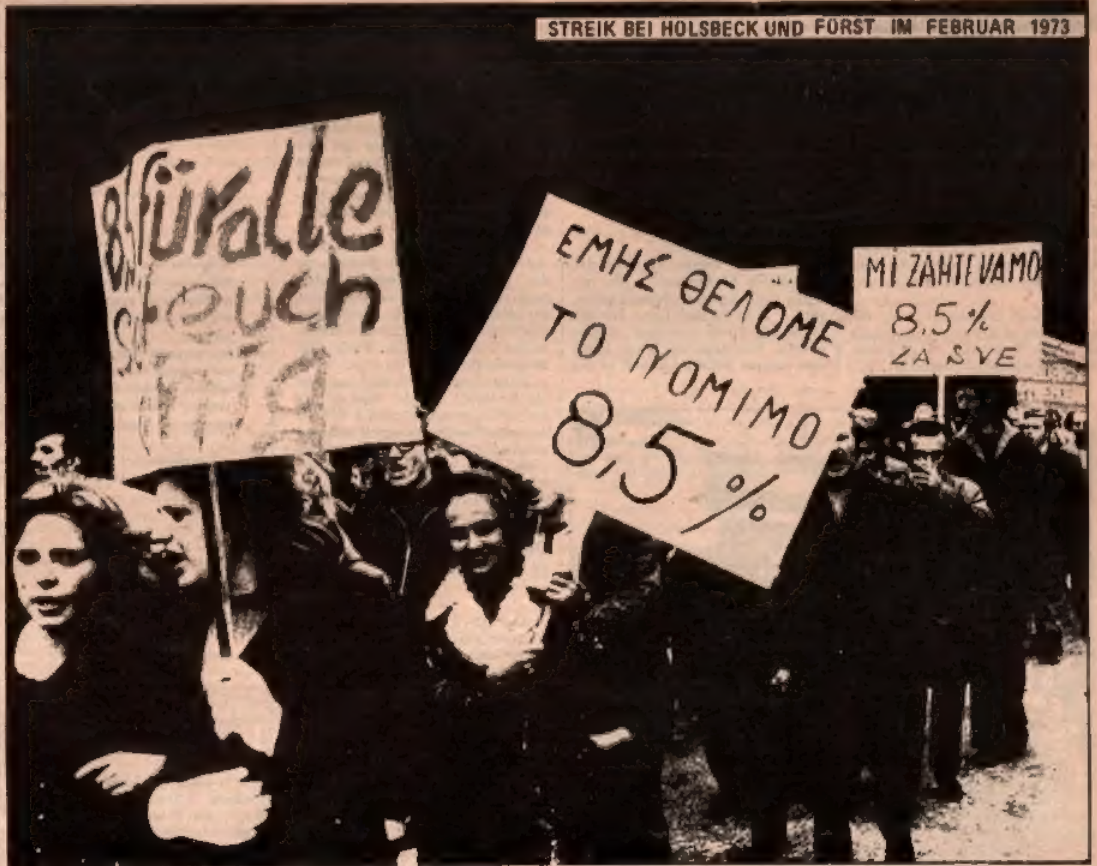 STREIK BEI HOLSBECK UND FORST IM FEBRUAR 1973
für alle
euch
ΕΜΗΣ ΘΕΛΟΜΕ
ΤΟ ΝΟΜΙΜΟ
8,5 %
MI ZAHTEVAMO
8.5 %
ZA SVE